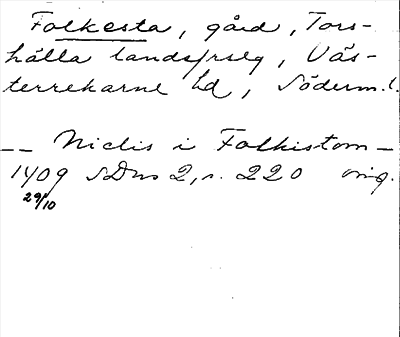 Folkesta, gård, Tors-
hälla landsfrslg, Väs-
terrekarne hd, Söderm.l.
-- Niclis i Folkistom -
1409 SDns 2, s. 220 orig.
29/10